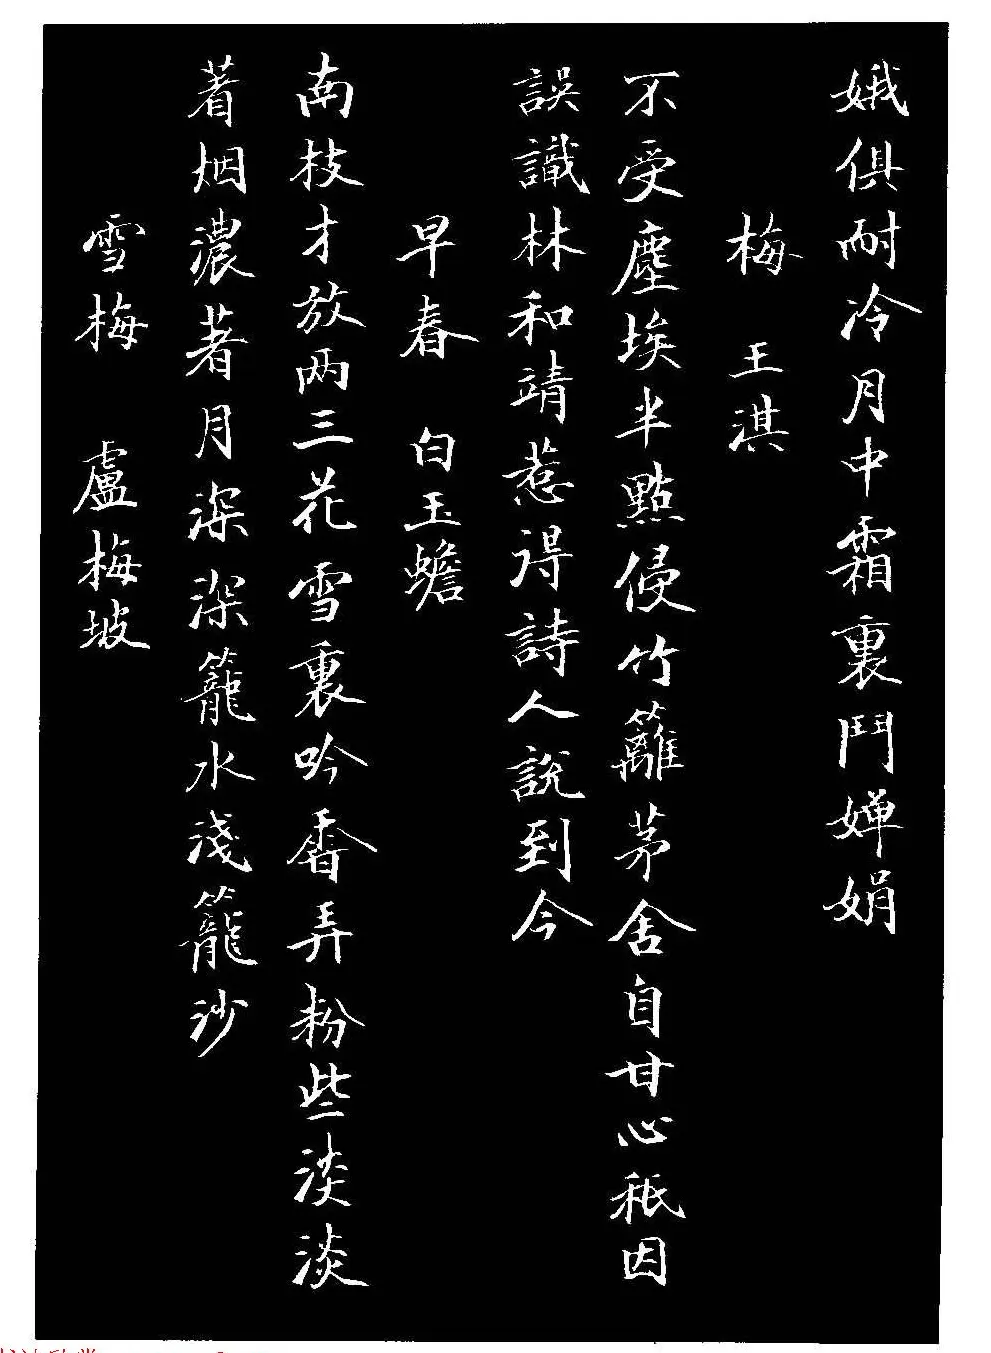 娥俱耐冷月中霜裏鬥嬋娟
梅 王淇
不受塵埃半點侵竹籬茅舍自甘心秖因
誤識林和靖惹得詩人說到今
早春 白玉蟾
南枝才放两三花雪裏吟香弄粉些淡淡
著烟濃著月深深籠水淺籠沙
雪梅 盧梅坡